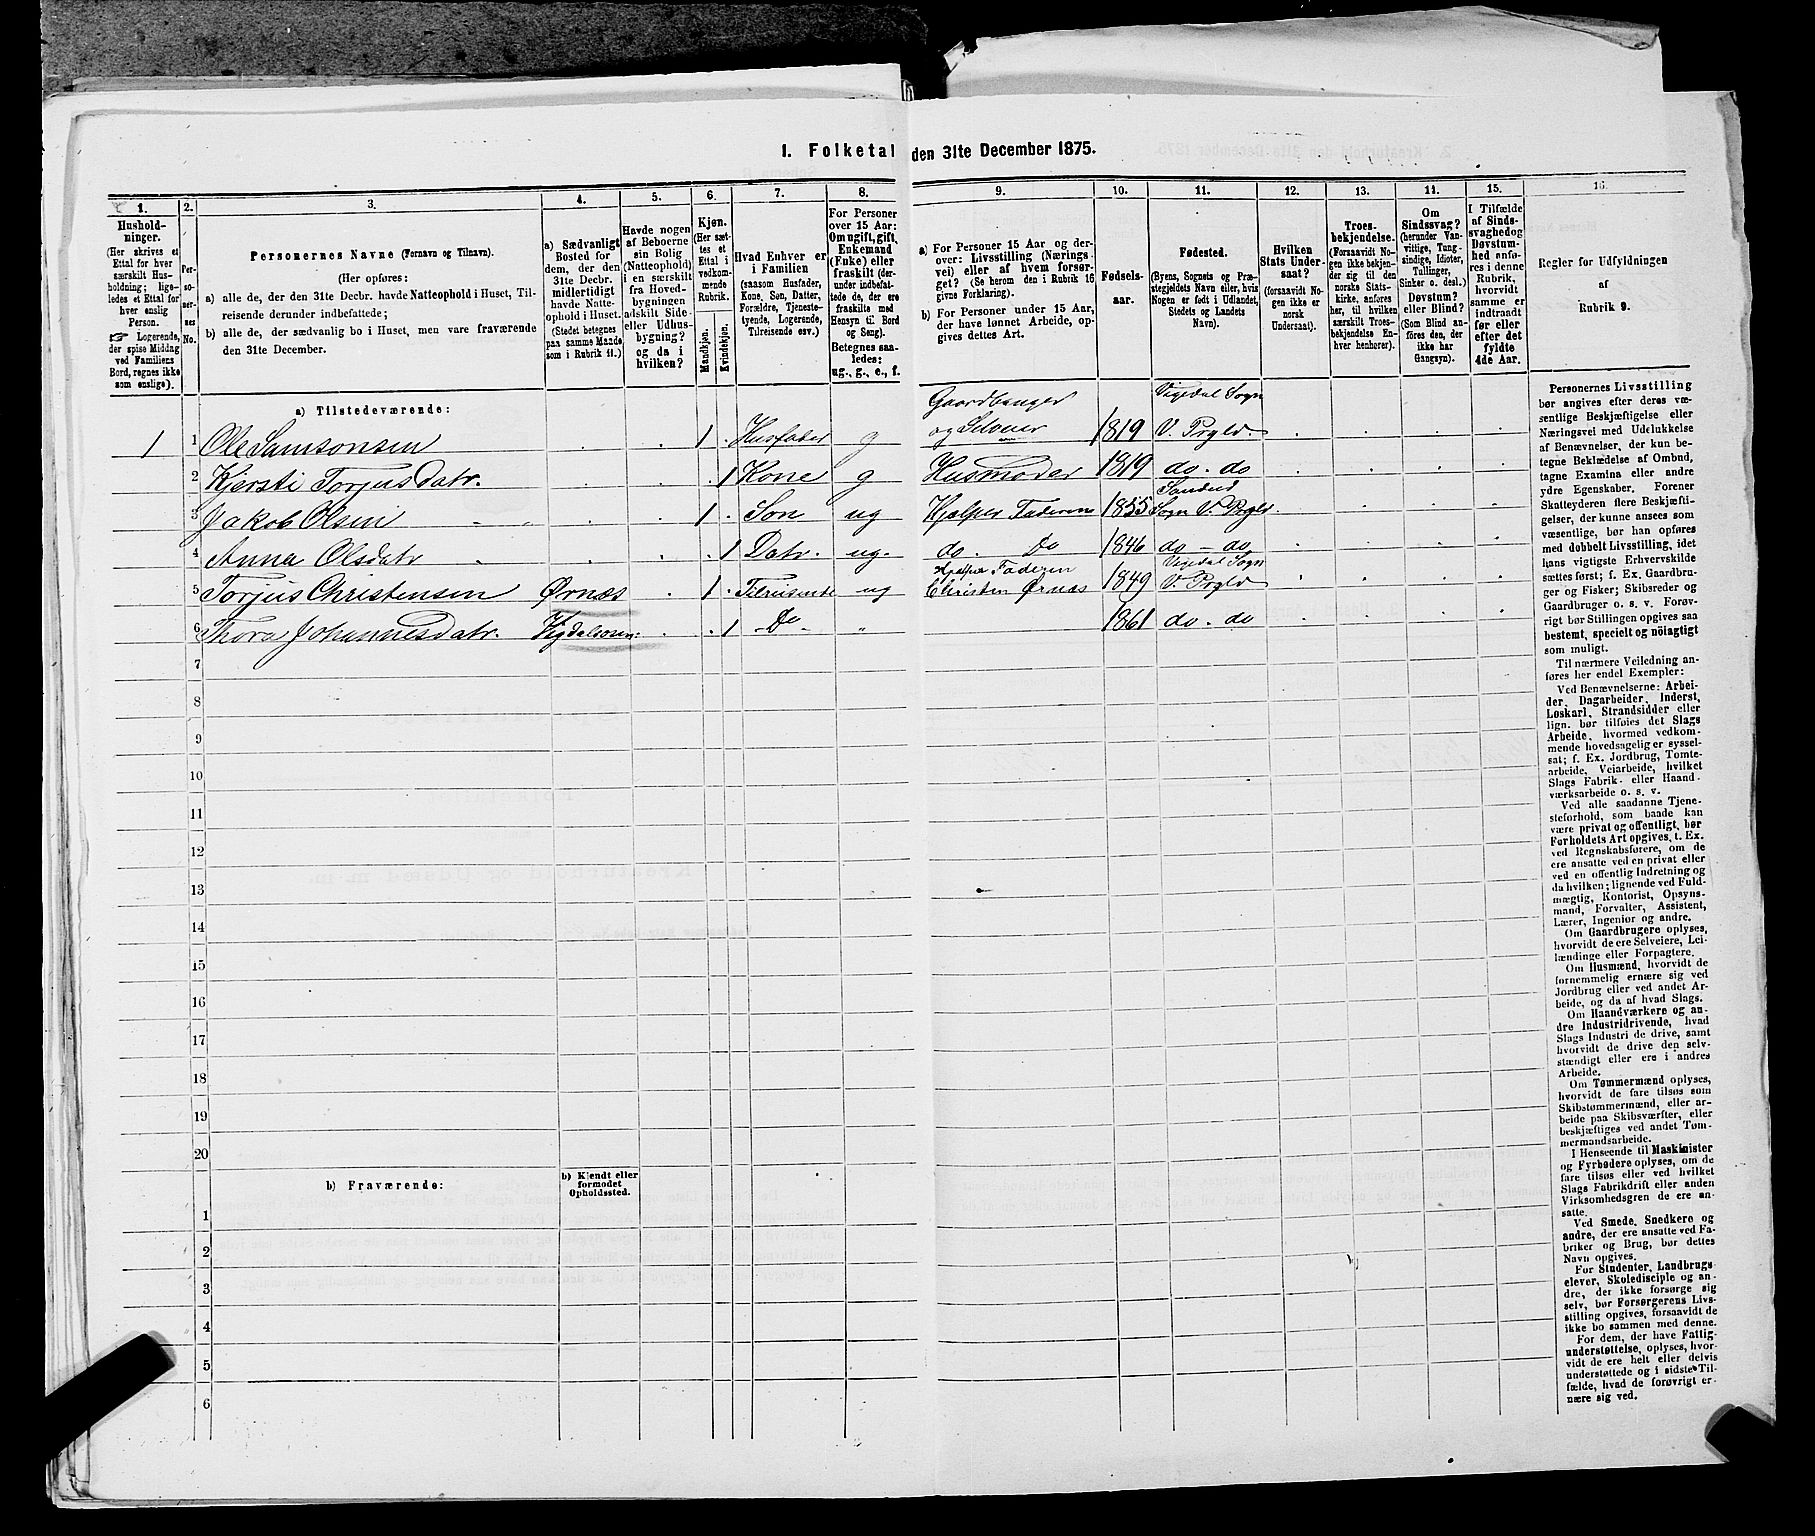 1. Folketal den 31te December 1875.
1.
Hushold-
ninger.
(Her skrives et
Ettal for hver
særskilt Hus-
holdning; lige-
ledes et Ettal for
hver enslig
Person.
☞ Logerende,
der spise Middag
ved Familiens
Bord, regnes ikke
som enslige).
2.
Per-
so-
ner-
nes
No.
3.
Personernes Navne (Fornavn og Tilnavn).
(Her opføres:
a) alle de, der den 31te Decbr. havde Natteophold i Huset, Til-
reisende derunder indbefattede;
b) alle de, der sædvanlig bo i Huset, men vare fraværende
den 31te December.
4.
a) Sædvanligt
Bosted for
dem, der den
31te Decbr.
midlertidigt
havde Natte-
ophold i Huset.
(Stedet betegnes
paa samme Maade
som i Rubrik 11.)
5.
Havde nogen
af Beboerne
sin Bolig
(Natteophold)
i en særskilt
fra Hoved-
bygningen
adskilt Side-
eller Udhus-
bygning?
og da i
hvilken?
6.
Kjøn.
(Her sæt-
tes et
Ettal i
vedkom-
mende
Rubrik.
Mandkjøn.
Kvindekjøn.
7.
Hvad Enhver er
i Familien
(saasom Husfader,
Kone, Søn, Datter,
Forældre, Tjeneste-
tyende, Logerende,
Tilreisende osv.)
8.
For Personer
over 15 Aar:
Om ugift, gift,
Enkemand
(Enke) eller
fraskilt (der-
under indbefat-
tede de, der ere
fraskilte med
Hensyn til Bord
og Seng).
Betegnes saa-
ledes:
ug., g., e., f.
9.
a) For Personer 15 Aar og der-
over: Livsstilling (Nærings-
vei) eller af hvem forsør-
get (Se herom den i Rubrik 16
givne Forklaring).
b) For Personer under 15 Aar,
der have lønnet Arbeide, op-
gives dettes Art.
10.
Fødsels-
aar.
11.
Fødested.
(Byens, Sognets og Præ-
stegjeldets Navn eller, hvis
Nogen er født i Udlandet,
Stedets og Landets
Navn).
12.
Hvilken
Stats Under-
saat?
(forsaavidt No-
gen ikke er
norsk
Undersaat).
13.
Troes-
bekjendelse.
(Forsaavidt No-
gen ikke bekjen-
der sig til den
norske Stats-
kirke, anføres
her, til hvilken
særskilt Troes-
bekjendelse En-
hver henhører).
14.
Om
Sindssvag?
(herunder Van-
vittige, Tung-
sindige, Idioter,
Tullinger,
Sinker o. desl.)
Døvstum?
eller Blind?
(Som Blind an-
føres den, der
ikke har
Gangsyn).
15.
I Tilfælde
af Sinds-
svaghed og
Døvstum-
hed anfø-
res i denne
Rubrik,
hvorvidt
samme er
indtraadt
før eller
efter det
fyldte
4de Aar.
16.
Regler for Udfyldningen
af
Rubrik 9.
a) Tilstedeværende:
1 1 Ole Samsonsen 1 Husfader g Gaardbruger og Selveier 1819 Vigedal Sogn V. Prgld.
2 Kjersti Torjusdatr. 1 Kone g Husmoder 1819 do. do
3 Jakob Olsen 1 Søn ug Hjælper Faderen 1855 Sandeid Sogn V. Prgld.
4 Anna Olsdatr 1 Datr. ug. do. Do 1846 do - do
5 Torjus Christensen Ørnæs 1 Tilreisende ug Hjælper Faderen Christen Ørnæs 1849 Vigedal Sogn V. Prgld
6 Thora Johannesdatr. Vigdalsosen: 1 - Do - " 1861 do. do
7
8
9
10
11
12
13
14
15
16
17
18
19
20
b) Fraværende:
b) Kjendt eller
formodet
Opholdssted.
1
2
3
4
5
6
Personernes Livsstilling
bør angives efter deres væ-
sentlige Beskjæftigelse eller
Næringsvei med Udelukkelse
af Benævnelser, der kun be-
tegne Beklædelse af Ombud,
tagne Examina eller andre
ydre Egenskaber. Forener
Skatteyderen flere Beskjæfti-
gelser, der kunne ansees som
væsentlige, bør han opføres
med dobbelt Livsstilling, idet
hans vigtigste Erhvervskilde
sættes først; f. Ex. Gaardbru-
ger og Fisker; Skibsreder og
Gaardbruger o. s. v. Forøv-
rigt bør Stillingen opgives saa
bestemt, specielt og nøiagtigt
som muligt.
Til nærmere Veiledning an-
føres her endel Exempler:
Ved Benævnelserne: Arbei-
der, Dagarbeider, Inderst,
Løskarl, Strandsidder eller
lign. bør tilføies det Slags
Arbeide, hvormed vedkom-
mende hovedsagelig er syssel-
sat; f. Ex. Jordbrug, Tomte-
arbeide, Veiarbeide, hvilket
Slags Fabrik- eller Haand
værksarbeide o. s. v.
Ved alle saadanne Tjene-
steforhold, som baade kan
være privat og offentligt, bør
Forholdets Art opgives, t. Ex.
ved Regnskabsførere, om de
ere ansatte ved en privat eller
ved en offentlig Indretning og
da hvilken; lignende ved Fuld-
mægtig, Kontorist, Opsyns-
mand, Forvalter, Assistent,
Lærer, Ingeniør og andre.
Om Gaardbrugere oplyses,
hvorvidt de ere Selveiere, Lei-
lændinge eller Forpagtere.
Om Husmænd, hvorvidt de
fornemmelig ernære sig ved
Jordbrug eller ved andet Ar-
beide, og da af hvad Slags.
Om Haandværkere og an-
dre Industridrivende, hvad
Slags Industri de drive, samt
hvorvidt de drive den selv-
stændigt eller ere i andres
Arbeide.
Om Tømmermænd oplyses,
hvorvidt de fare tilsøs som
Skibstømmermænd, eller ar-
beide paa Skibsværfter, eller
beskjæftiges ved andet Tøm-
mermandsarbeide.
I Henseende til Maskinister
og Fyrbødere oplyses, om de
fare tilsøs eller ved hvilket
Slags Fabrikdrift eller anden
Virksomhedsgren de ere an-
satte.
Ved Smede, Snedkere og
andre, der ere ansatte ved Fa-
briker og Brug, bør dettes
Navn opgives.
For Studenter, Landbrugs
elever, Skoledisciple og an-
dre, der ikke forsørge sig
selv, bør Forsørgerens Livs-
stilling opgives, forsaavidt de
ikke bo sammen med denne.
For dem, der have Fattig-
understøttelse, oplyses, hvor-
vidt de ere helt eller delvis
understøttede og i sidste Til-
fælde, hvad de forøvrigt er-
nære sig ved.